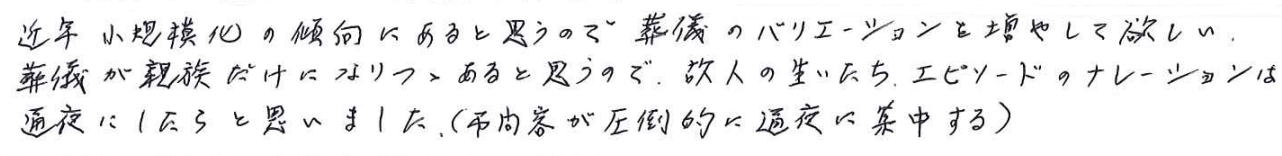 近年 小規模化の傾向にあると思うので 葬儀のバリエーションを増やして欲しい.
葬儀が親族だけになりつゝあると思うので. 故人の生いたち. エピソードのナレーションは
通夜にしたらと思いました.(弔問客が圧倒的に通夜に集中する)